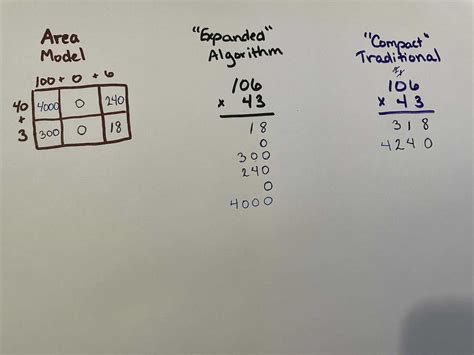 Area
Model
100 + 0 + 6
40 4000 0 240
+
3 300 0 18
"Expanded"
Algorithm
106
× 43
18
0
300
240
0
4000
"Compact"
Traditional
106
× 43
318
4240